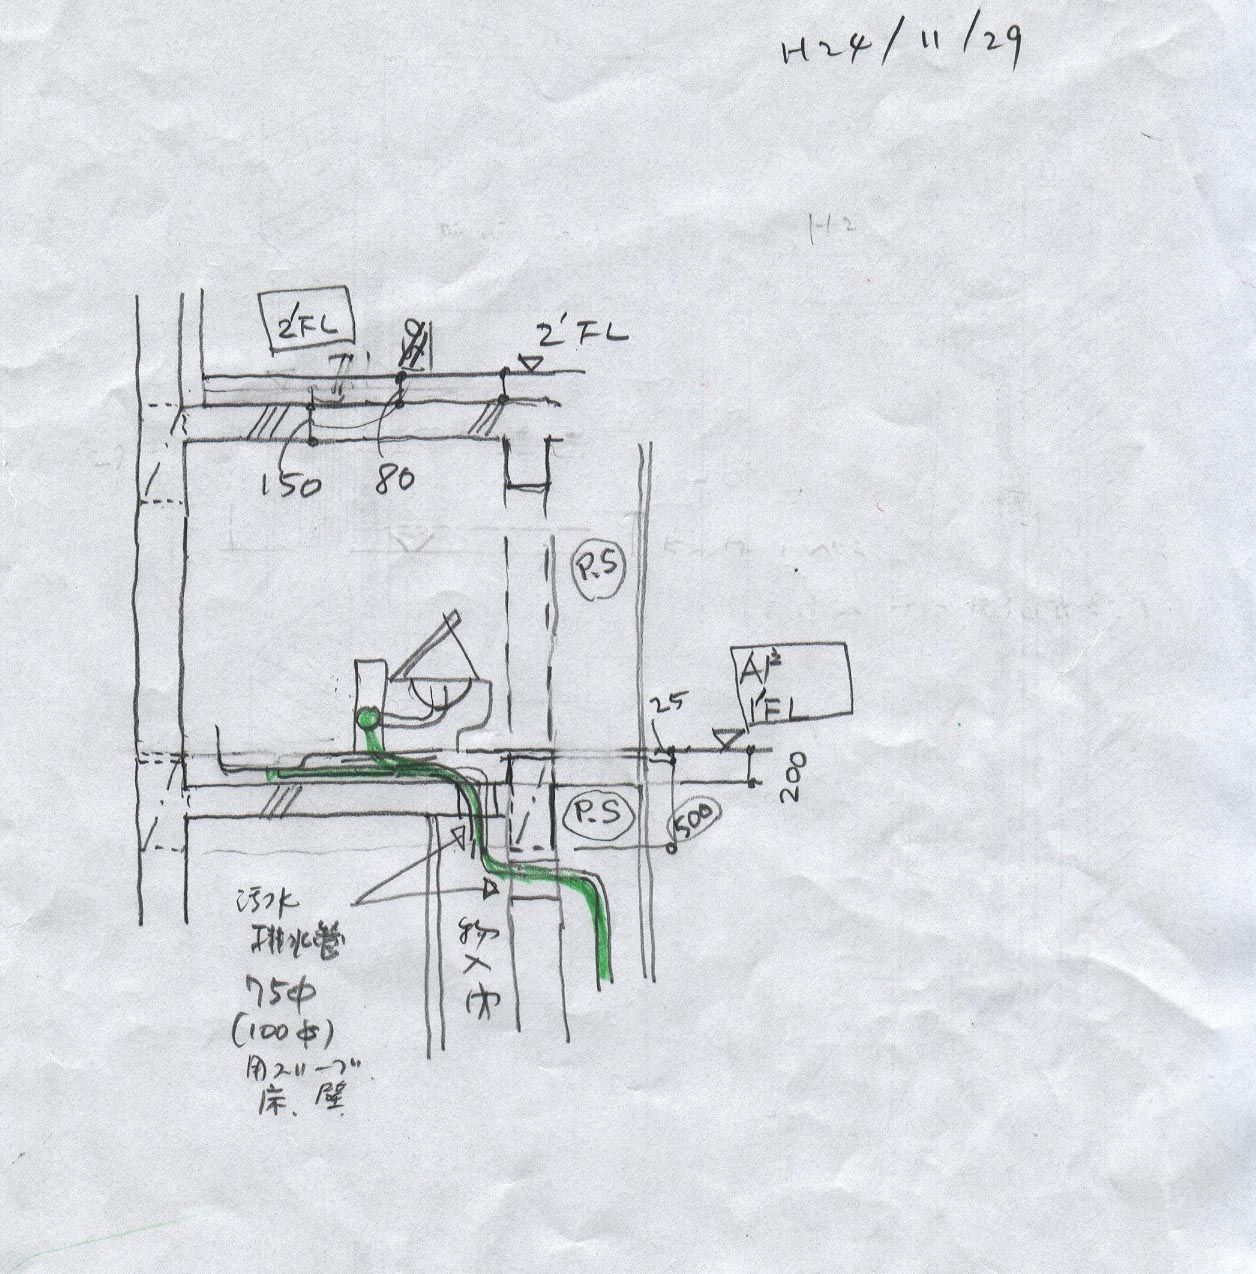 H24/11/29
2'FL
2'FL
150
80
P.S
25
1'FL
200
P.S
500
汚水
排水管
75φ
(100φ)
用スリーブ
床、壁